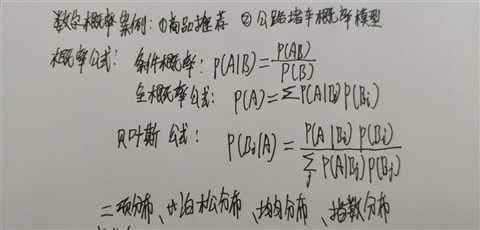 数学概率案例：①商品推荐 ②公路堵车概率模型
概率公式：条件概率：P(A|B)=P(AB)/P(B)
全概率公式：P(A)=∑P(A|Bi)P(Bi)
贝叶斯公式：P(Bi|A)=P(A|Bi)P(Bi)/∑j P(A|Bj)P(Bj)
二项分布、泊松分布、均匀分布、指数分布